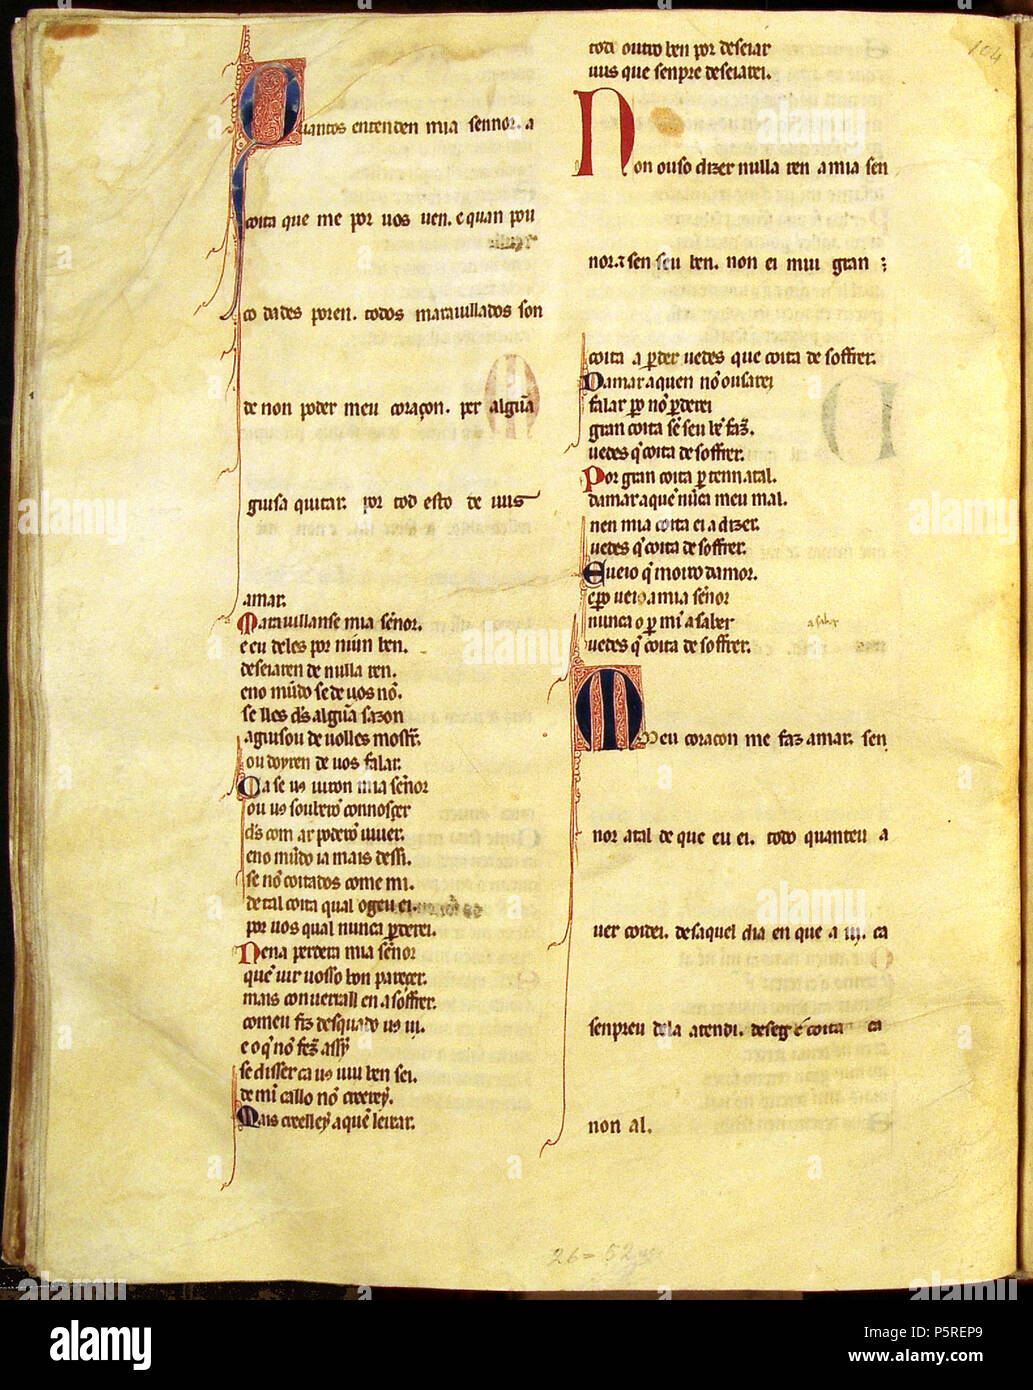 Quantos entenden mia sennor. a
coita que me por uos uen. e quan pou
co dades poren. todos marauillados son
de non poder meu coraçon. per algũa
guisa quitar. por tod esto de uus
amar.
Marauillanse mia sẽnor.
e eu deles por nũun ben.
deseiaren de nulla ren.
eno mũdo se de uos nõ.
se lles d̃s algũa sazon
aguisou de uolles mostr̃.
ou doyren de uos falar.
Ca se us uiron mia sẽnor
ou us souberõ connosçer
d̃s com ar poderõ uiuer.
eno mũdo ia mais dessi.
se nõ coitados come mi.
de tal coita qual ogeu ei.
por uos qual nunca ꝑderei.
Nena perdera mia sẽnor
quẽ uir uosso bon pareçer.
mais conuerrall en a soffrer.
comeu fiz desquãdo us ui.
e o q̃ nõ fez̃ assy
se disser ca us uiu ben sei.
de mĩ callo nõ creerey.
Mais creelley a quẽ leixar.
tod outro ben por deseiar
uus que senpre deseiarei.
Non ouso dizer nulla ren a mia sen
nor. ⁊ sen seu ben. non ei mui gran
coita a ꝑder uedes que coita de soffrer.
Damar a quen nõ ousarei
falar ꝑo nõ ꝑderei
gran coita sẽ seu bẽ faz̃.
uedes q̃ coita de soffrer.
Por gran coita ꝑ tenn atal.
damar a quẽ nũca meu mal.
nen mia coita ei a dizer.
uedes q̃ coita de soffrer.
E ueio q̃ moiro damor.
e ꝑo ueio a mia sẽnor
nunca o ꝑ mĩ a saber
a saber
uedes q̃ coita de soffrer.
Meu coracon me faz amar. sen
nor atal de que eu ei. todo quanteu a
uer coidei. desaquel dia en que a ui. ca
senpreu dela atendi. deseg̃ e coita ca
non al.
104
26 = 52
alamy
Image ID: P5REP9
www.alamy.com